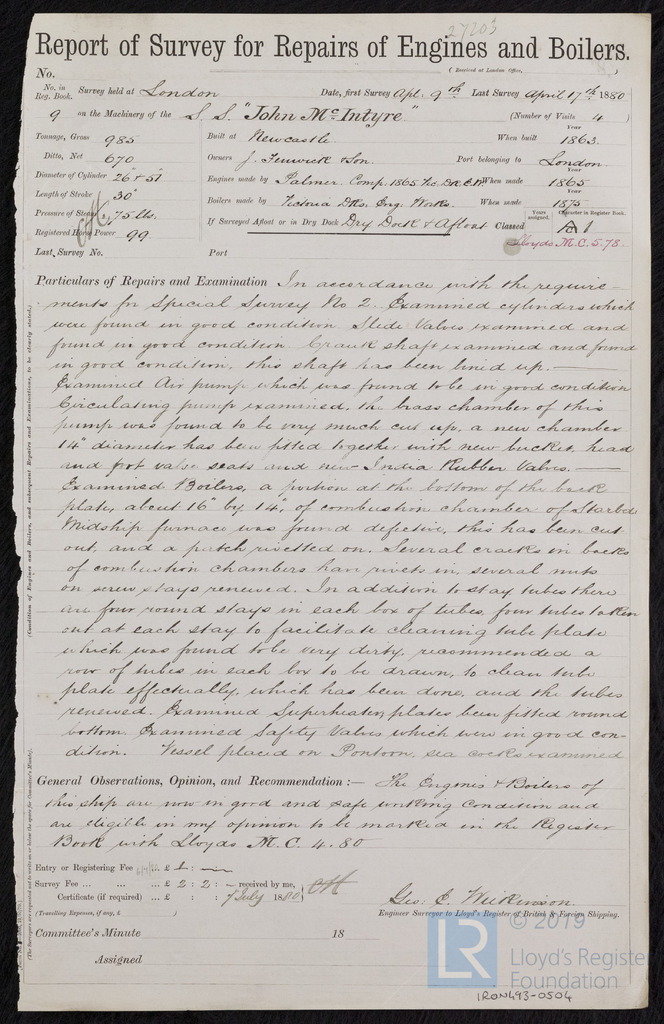 27203
Report of Survey for Repairs of Engines and Boilers.
No. (Received at London Office, )
No. in Reg. Book. Survey held at London Date, first Survey Apl. 9th Last Survey April 17th 1880
9 on the Machinery of the S. S. "John McIntyre" (Number of Visits 4
Tonnage, Gross 985 Built at Newcastle When built Year 1863.
Ditto, Net 670 Owners J. Fenwick & Son. Port belonging to London
Diameter of Cylinder 26" & 51" Engines made by Palmer. Comp. 1865 Vic. When made Year 1865
Length of Stroke 30" Boilers made by Victoria Dks. Eng. Works. When made Year 1875
Pressure of Steam 75 lbs. If Surveyed Afloat or in Dry Dock Dry Dock & Afloat Classed Years assigned. Character in Register Book. A1
Registered Horse Power 99 Lloyds M.C. 5.78
Last Survey No. Port
Particulars of Repairs and Examination In accordance with the require-
ments for Special Survey No 2. Examined cylinders which
were found in good condition Slide Valves examined and
found in good condition. Crank shaft examined and found
in good condition, this shaft has been lined up.—
Examined Air pump which was found to be in good condition
Circulating pump examined, the brass chamber of this
pump was found to be very much cut up, a new chamber
14" diameter has been fitted together with new bucket, head
and foot valve seats and new India Rubber Valves.—
Examined Boilers, a portion at the bottom of the back
plate, about 16" by 14", of combustion chamber of Starbd
Midship furnace was found defective, this has been cut
out, and a patch rivetted on. Several cracks in backs
of combustion chambers have rivets in, several nuts
on screw stays renewed. In addition to stay tubes there
are four round stays in each box of tubes, four tubes taken
out at each stay to facilitate cleaning tube plate
which was found to be very dirty, recommended a
row of tubes in each box to be drawn, to clean tube
plate effectually, which has been done, and the tubes
renewed. Examined Superheater, plates been fitted round
bottom. Examined Safety Valves which were in good con-
dition. Vessel placed on Pontoon, sea cocks examined
General Observations, Opinion, and Recommendation :— The Engines & Boilers of
this ship are now in good and safe working condition and
are eligible in my opinion to be marked in the Register
Book with Lloyds M.C. 4.80
Entry or Registering Fee £ 1 : —
Survey Fee ... £ 2 : 2 : — received by me,
Certificate (if required) ... £ : : 7 July 1880
(Travelling Expenses, if any, £ )
Geo: E. Wilkinson.
Engineer Surveyor to Lloyd's Register of British & Foreign Shipping.
Committee's Minute 18
Assigned
© 2019
LR
Lloyd's Register
Foundation
IRON493-0504